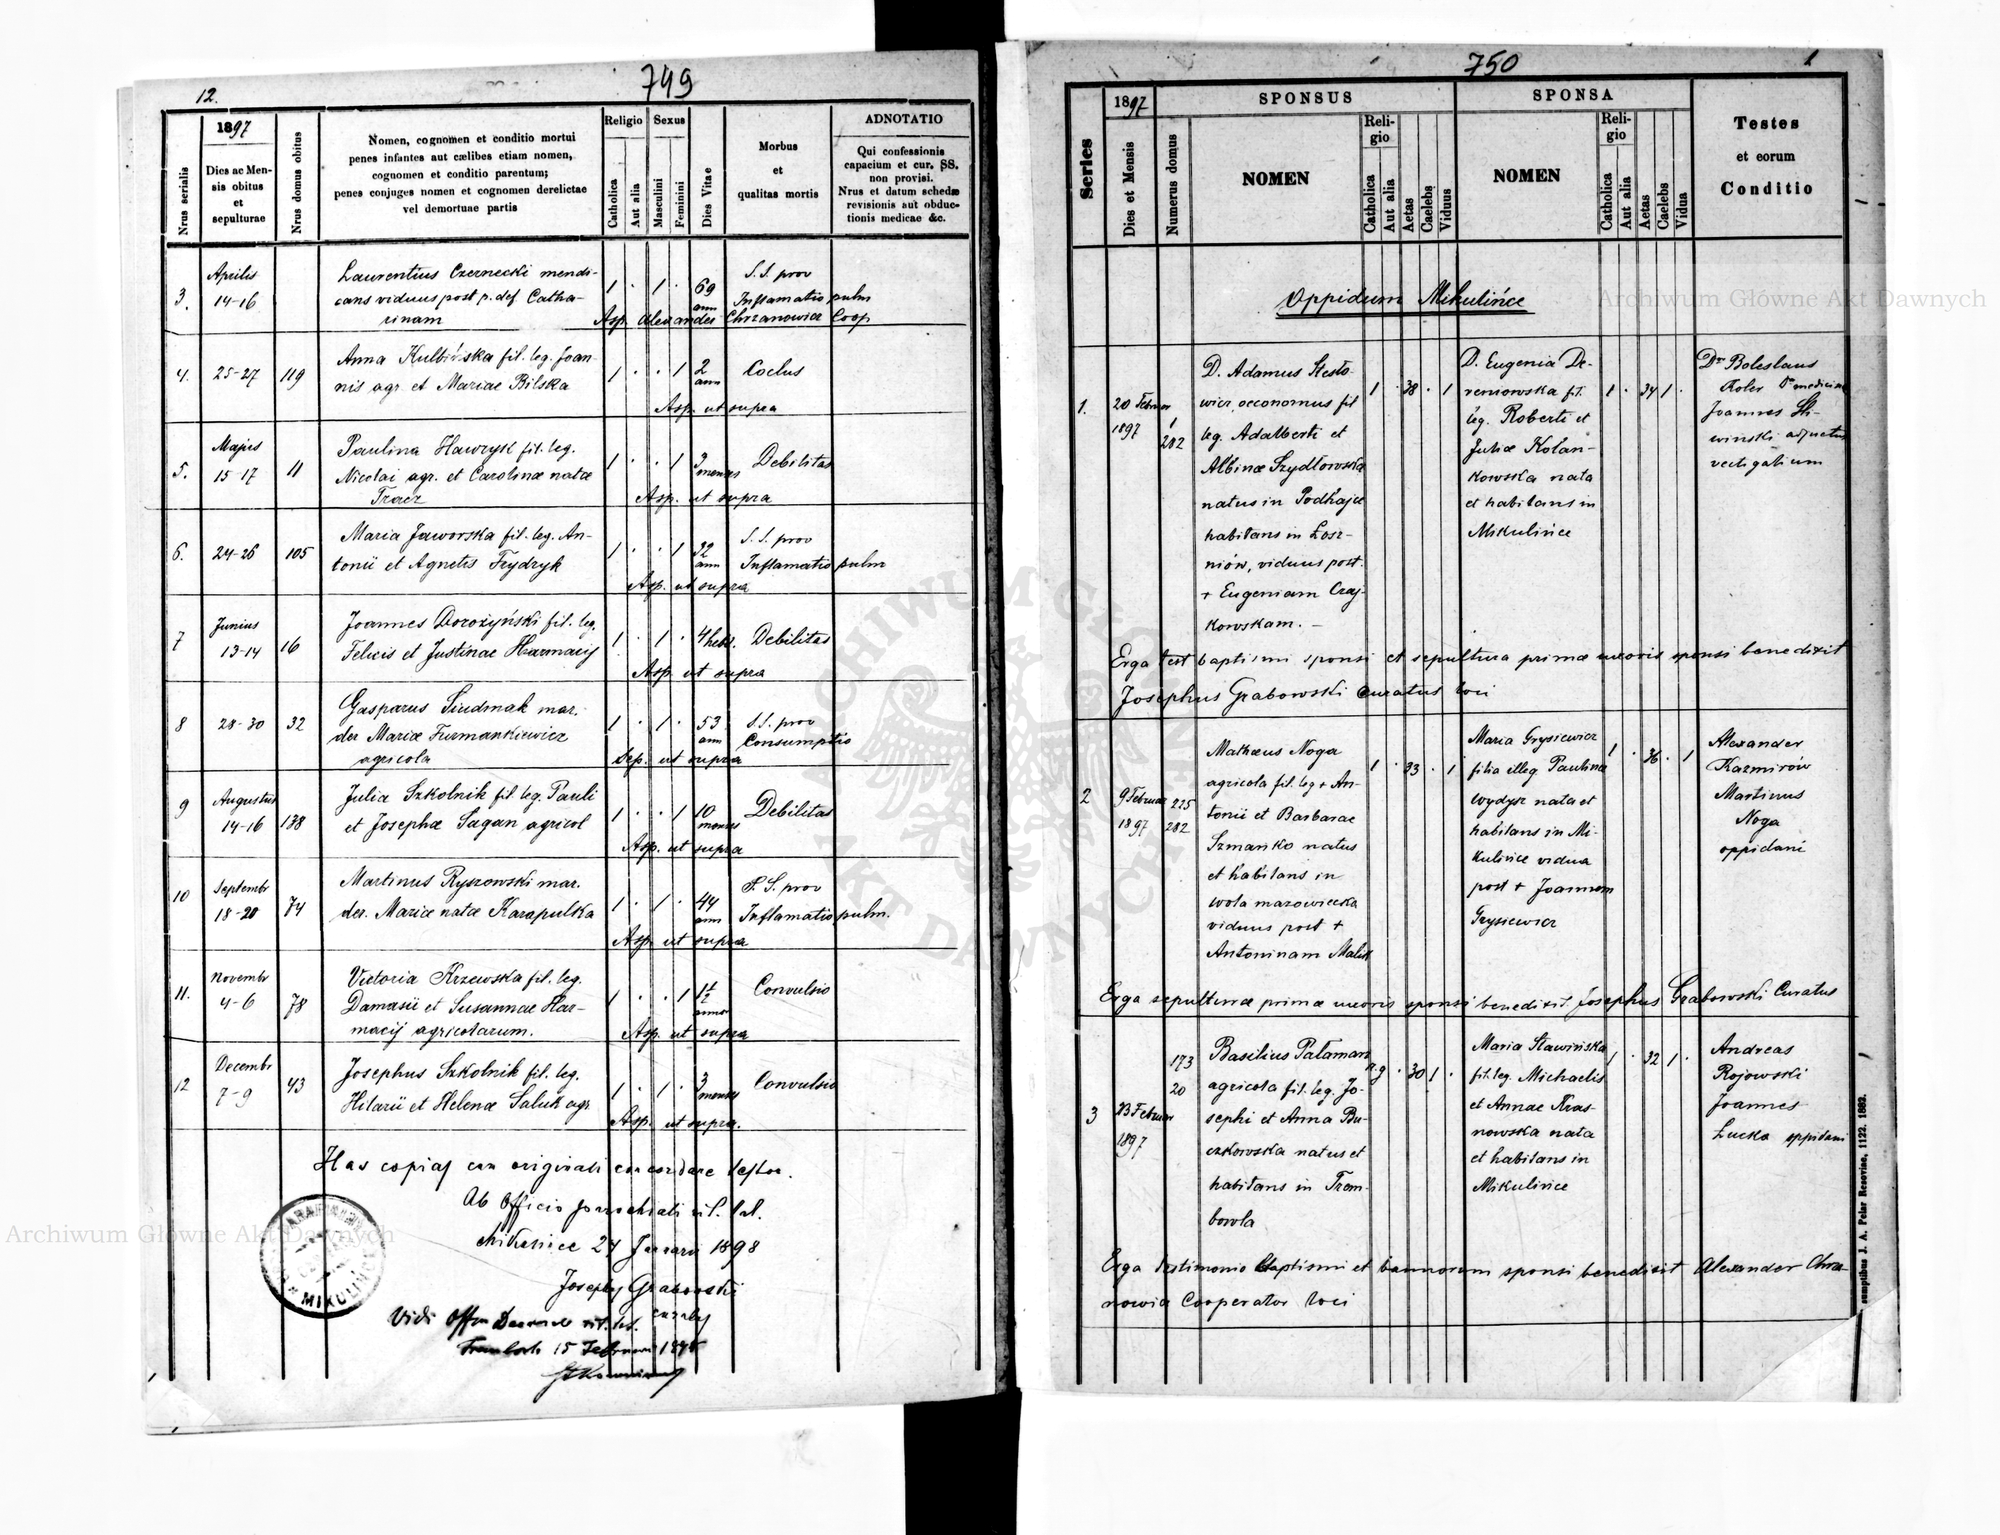 749
12.
1897
Nrus serialis
Dies ac Men-
sis obitus
et
sepulturae
Nrus domus obitus
Nomen, cognomen et conditio mortui
penes infantes aut cælibes etiam nomen,
cognomen et conditio parentum;
penes conjuges nomen et cognomen derelictae
vel demortuae partis
Religio
Catholica
Aut alia
Sexus
Masculini
Feminini
Dies Vitae
Morbus
et
qualitas mortis
ADNOTATIO
Qui confessionis
capacium et cur. SS.
non provisi.
Nrus et datum schedæ
revisionis aut obduc-
tionis medicae &c.
3. Aprilis 14-16
Laurentius Czernecki mendi-
cans viduus post p. def. Catha-
rinam
1 . 1 . 69 ann
S. S. prov
Inflamatio pulm
Asp. Alexander Chrzanowicz Coop
4. 25-27 119
Anna Kulbińska fil. leg. Joan-
nis agr. et Mariae Bilska
1 . . 1 2 ann Coclus
Asp. ut supra
5. Majus 15-17 11
Paulina Hawryk fil. leg.
Nicolai agr. et Carolinæ natæ
Tracz
1 . . 1 3 menses Debilitas
Asp. ut supra
6. 24-26 105
Maria Jaworska fil. leg. An-
tonii et Agnetis Frydryk
1 . . 1 32 ann
S. S. prov
Inflamatio pulm
Asp. ut supra
7 Junius 13-14 16
Joannes Dorożyński fil. leg.
Felicis et Justinae Harmacij
1 . 1 . 4 hebd. Debilitas
Asp. ut supra
8 28-30 32
Gasparus Siudmak mar.
der Mariæ Furmankiewicz
agricola
1 . 1 . 53 ann
S. S. prov
Consumptio
Sep. ut supra
9 Augustus 14-16 138
Julia Szkolnik fil. leg. Pauli
et Josephæ Sagan agricol
1 . . 1 10 menses Debilitas
Asp. ut supra
10 Septembr 18-20 74
Martinus Ryszowski mar.
der. Mariæ natæ Karapulka
1 . 1 . 44 ann
S. S. prov
Inflamatio pulm.
Asp. ut supra
11. Novembr 4-6 78
Victoria Krzewska fil. leg.
Damasii et Susannae Har-
macij agricolarum.
1 . . 1 1½ anno Convulsio
Asp. ut supra
12 Decembr 7-9 43
Josephus Szkolnik fil. leg.
Hilarii et Helenæ Saluk agr
1 . 1 . 3 menses Convulsio
Asp. ut supra.
Has copias cum originali concordare testor.
Ab Officio parochiali rit. lat.
Mikulince 27 Januarii 1898
Josephus Grabowski
curatus
Vidi Offm Decanale rit. lat.
15 Februarii 1898
MIKULINCE
750
1
Series
1897
Dies et Mensis
Numerus domus
SPONSUS
NOMEN
Reli-
gio
Catholica
Aut alia
Aetas
Caelebs
Viduus
SPONSA
NOMEN
Reli-
gio
Catholica
Aut alia
Aetas
Caelebs
Vidua
Testes
et eorum
Conditio
Oppidum Mikulińce
1. 20 Februar 1897
1
282
D. Adamus Stesło-
wicz, oeconomus fil
leg. Adalberti et
Albinæ Szydłowska
natus in Podhajce
habitans in Łosz-
niów, viduus post.
+ Eugeniam Czaj-
kowskam. -
1 . 38 . 1
D. Eugenia De-
reniowska fil.
leg. Roberti et
Juliæ Kołan-
kowska nata
et habitans in
Mikulińce
1 . 34 1 .
Dr Boleslaus
Roler Dr medicinæ
Joannes Sli-
winski adjuctus
vectigalium
Erga test baptismi sponsi et sepultura primæ uxoris sponsi benedixit
Josephus Grabowski curatus loci
2 9 Februar 1897
225
282
Mathæus Noga
agricola fil. leg + An-
tonii et Barbarae
Szmańko natus
et habitans in
wola mazowiecka
viduus post +
Antoninam Malik
1 . 33 . 1
Maria Grysiewicz
filia illeg Paulinæ
Wydysz nata et
habitans in Mi-
kulińce vidua
post + Joannem
Grysiewicz
1 . 36 . 1
Alexander
Kazmirów
Martinus
Noga
oppidani
Erga sepulturæ primæ uxoris sponsi benedixit Josephus Grabowski Curatus
3 23 Februar 1897
173
20
Basilius Palaman
agricola fil. leg. Jo-
sephi et Anna Bu-
czkowska natus et
habitans in Trem-
bowla
r.g . 30 1 .
Maria Stawińska
fil. leg. Michaelis
et Annae Kras-
nowska nata
et habitans in
Mikulińce
1 . 32 1 .
Andreas
Rojowski
Joannes
Łucka oppidani
Erga testimonio Baptismi et bannorum sponsi benedixit Alexander Chrza-
nowicz Cooperator loci
sumptibus J. A. Pelar Resoviae, 1122. 1882.
Archiwum Główne Akt Dawnych
Archiwum Główne Akt Dawnych
ARCHIWUM GŁÓWNE AKT DAWNYCH